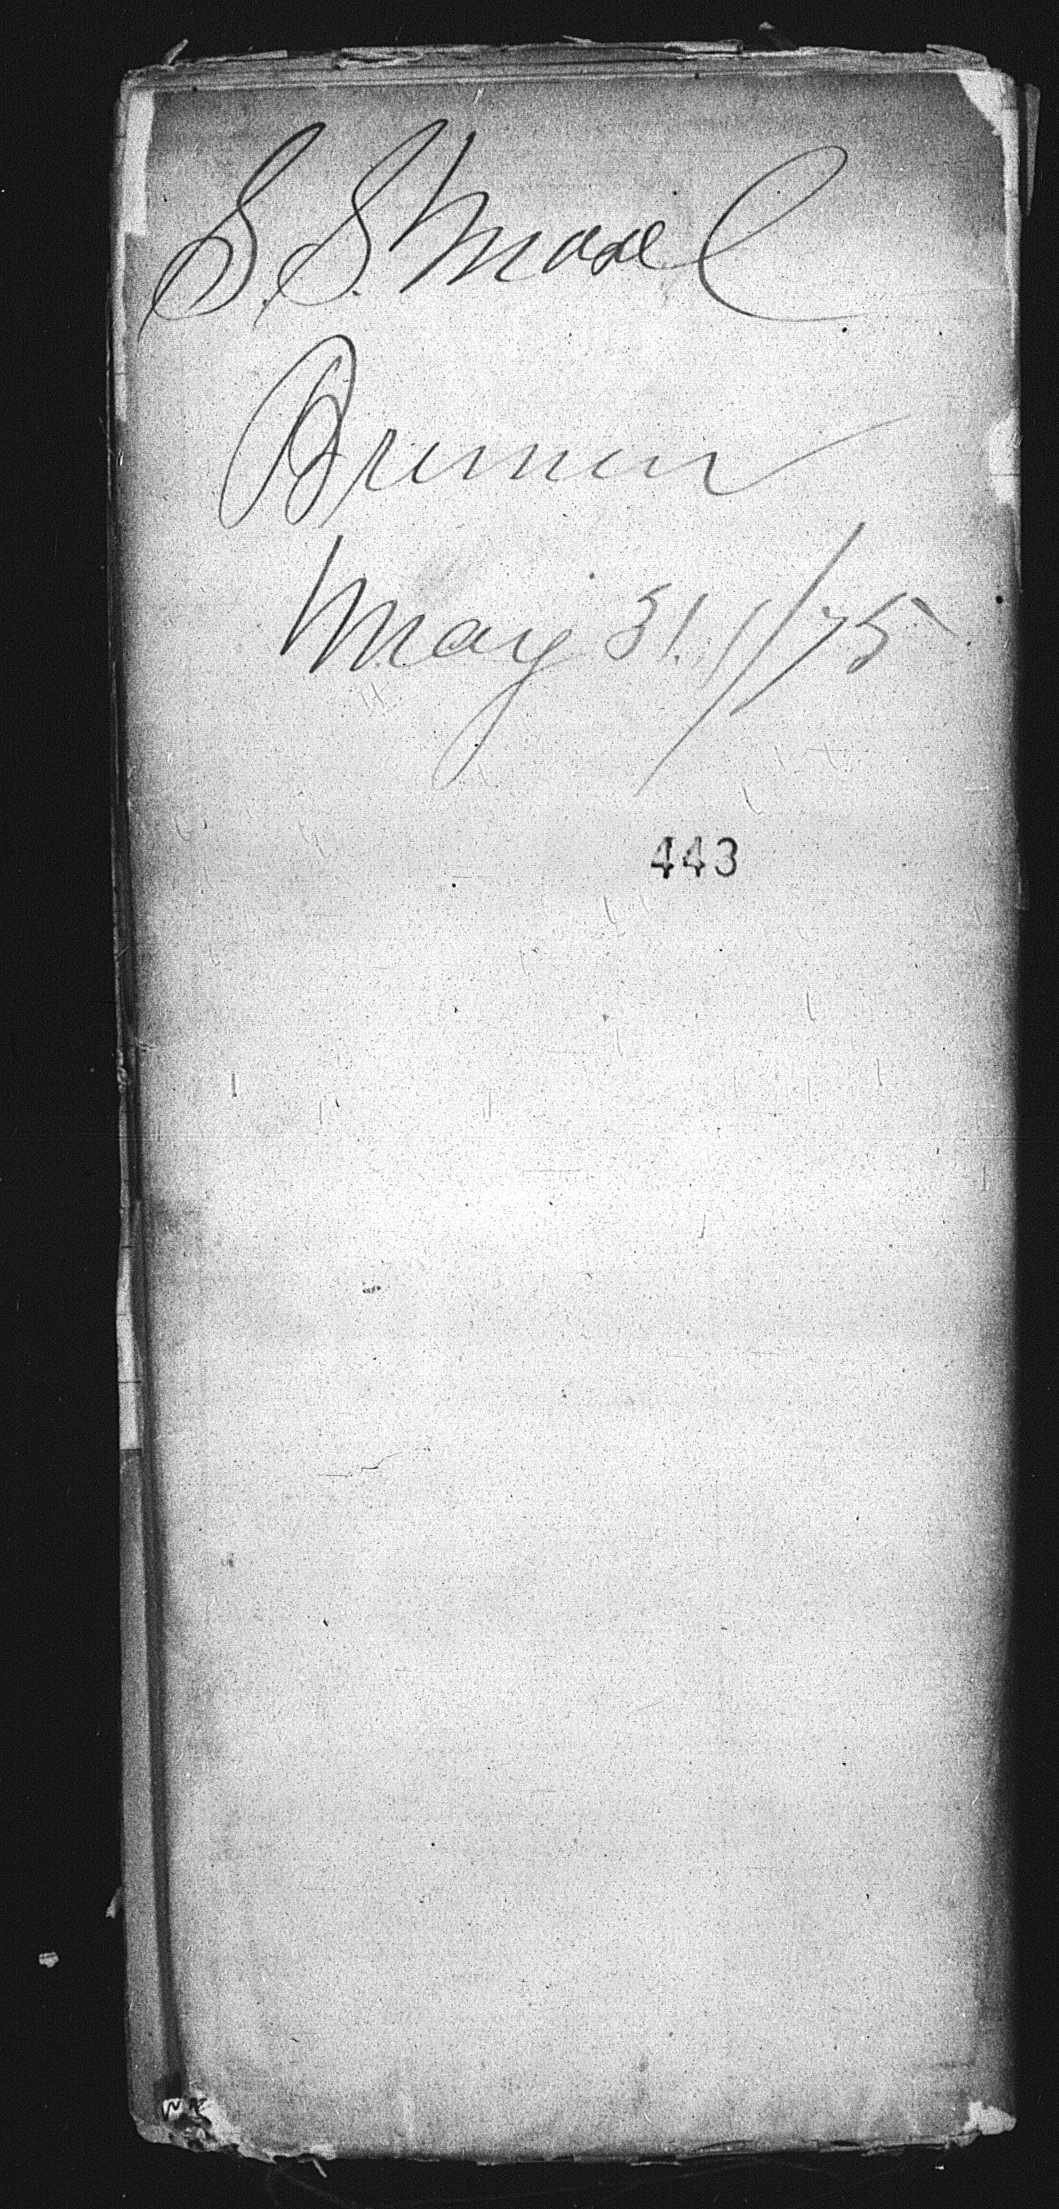 S. S. Mosel
Bremen
May 31. 1/75
443